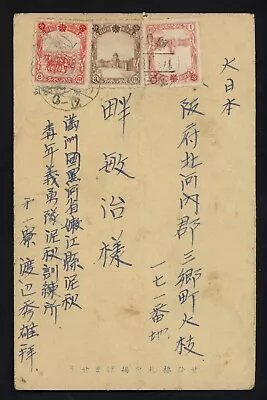 大日本
阪府北河內郡三郷町大枝
一七一番地
畔敏治様
満洲國黒河省嫩江縣泥秋
青年義勇隊泥秋訓練所
オ一寮 渡辺秀雄拜